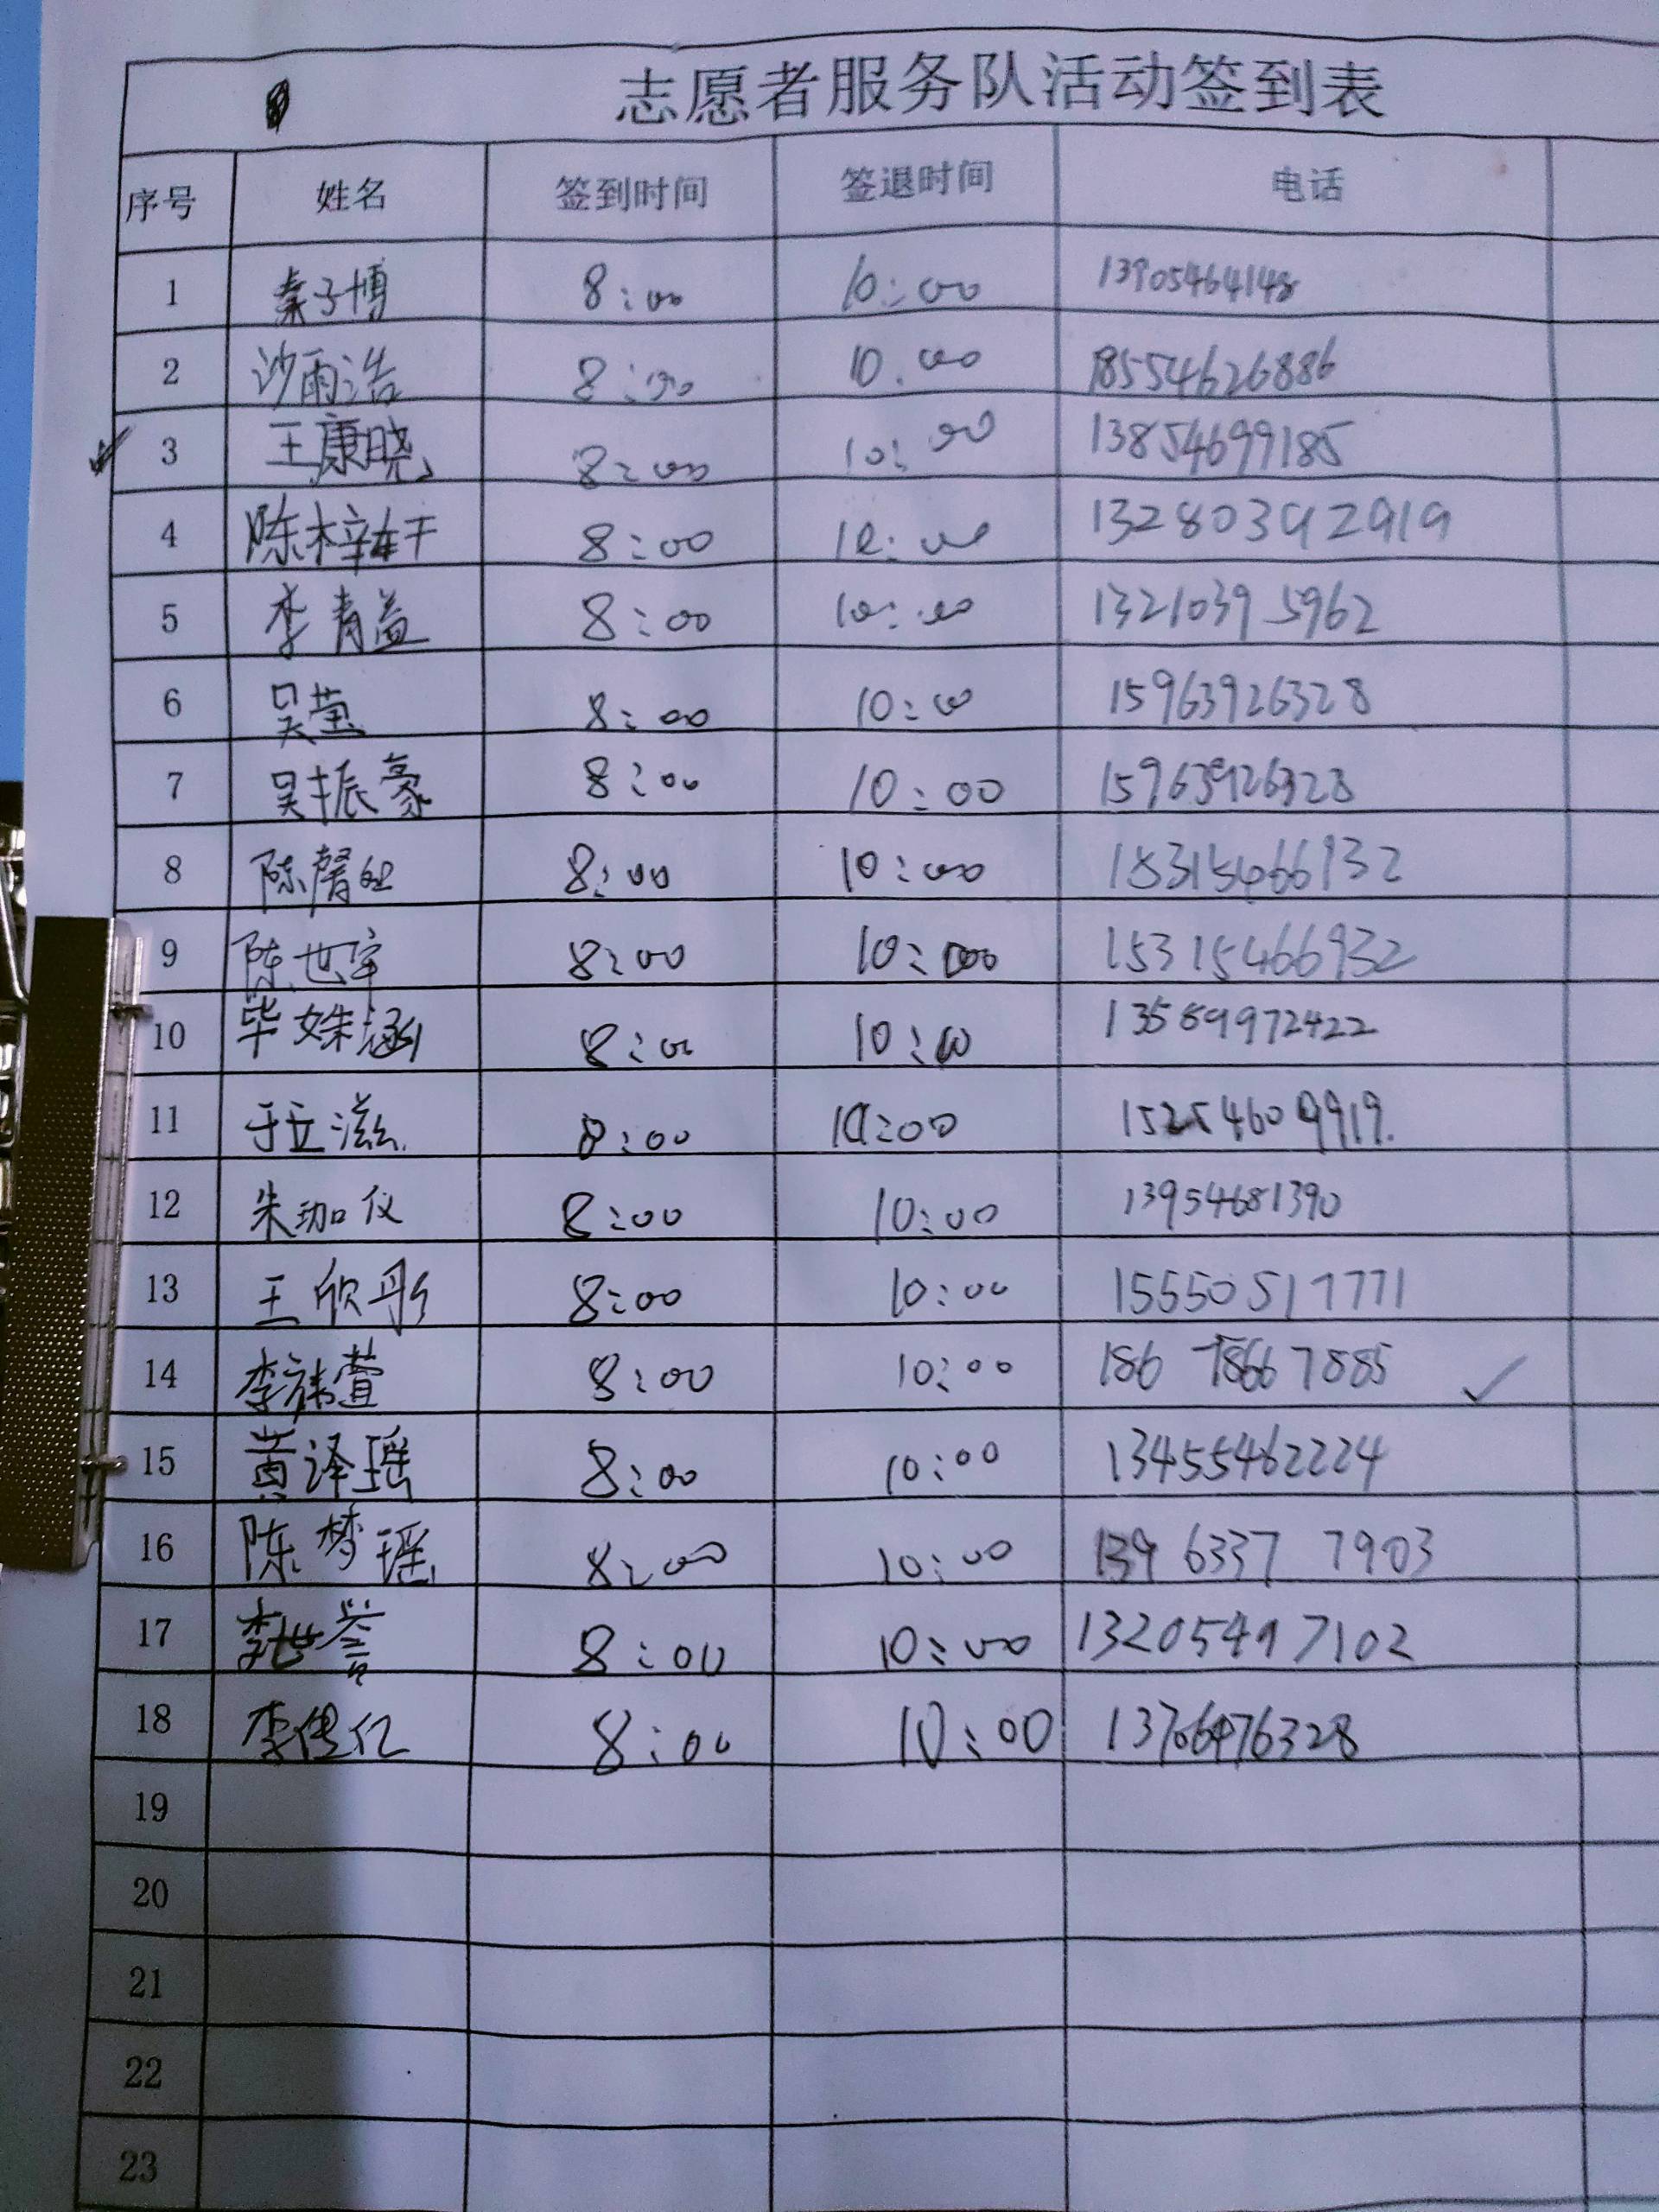 志愿者服务队活动签到表
序号 姓名 签到时间 签退时间 电话
1 秦子博 8:00 10:00 13905464148
2 沙雨浩 8:00 10:00 18554626886
3 王康晓 8:00 10:00 13854699185
4 陈梓轩 8:00 10:00 13280392919
5 李青益 8:00 10:00 13210395962
6 吴萤 8:00 10:00 15963926328
7 吴振豪 8:00 10:00 15963926328
8 陈馨 8:00 10:00 15315466932
9 陈世宇 8:00 10:00 15315466932
10 毕姝涵 8:00 10:00 13589972422
11 于立滋 8:00 10:00
12 朱珈仪 8:00 10:00 13954681390
13 王欣彤 8:00 10:00 15550517771
14 李祎萱 8:00 10:00 186 7866 7885
15 黄泽瑶 8:00 10:00 13455462224
16 陈梦瑶 8:00 10:00 139 6337 7903
17 李世誉 8:00 10:00
18 8:00 10:00 13706476328
19
20
21
22
23